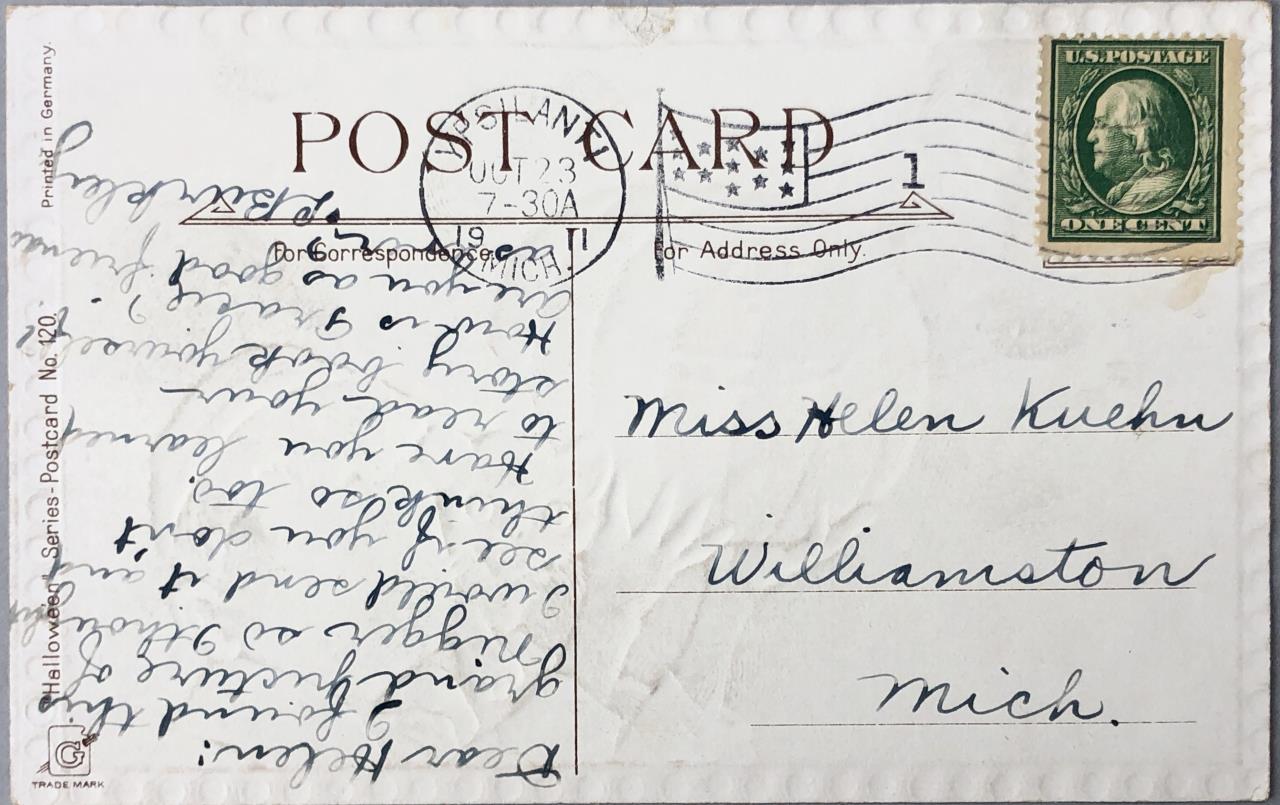 Printed in Germany.
Halloween Series - Postcard No. 120.
G
TRADE MARK
POST CARD
For Correspondence.
For Address Only.
YPSILANTI
OCT 23
7-30A
1911
MICH.
1
U.S. POSTAGE
ONE CENT
Miss Helen Kuehn
Williamston
Mich.
Dear Helen!
I found this
grand picture of
Nigger so I thought
I would send it and
see if you don't
think so too.
Have you learned
to read your
story book yourself?
How is
Are you as good friends
as ever?